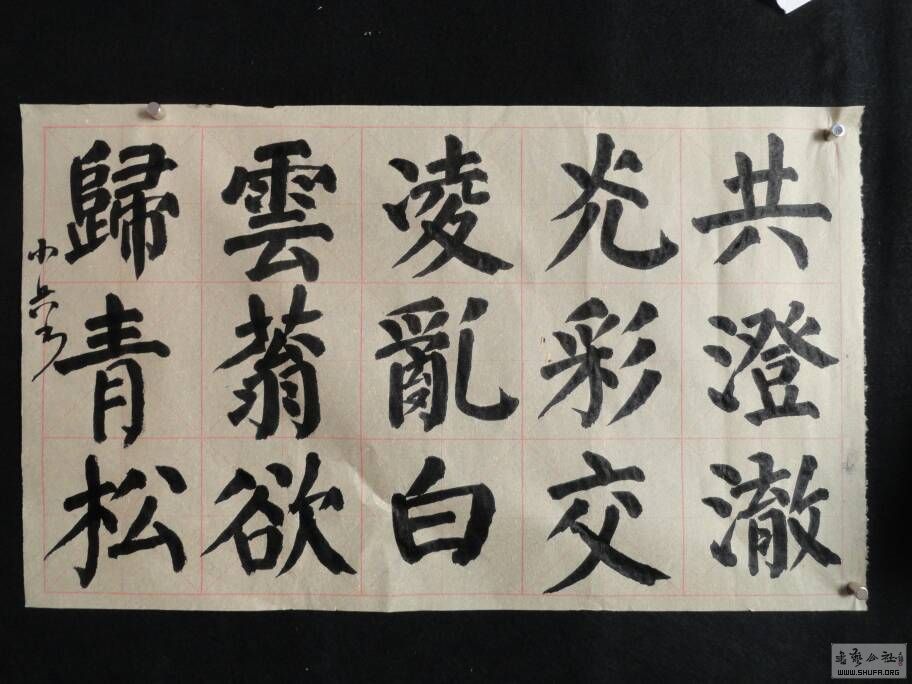 共澄澈
光彩交
凌亂白
雲蓊欲
歸青松
書藝公社
WWW.SHUFA.ORG